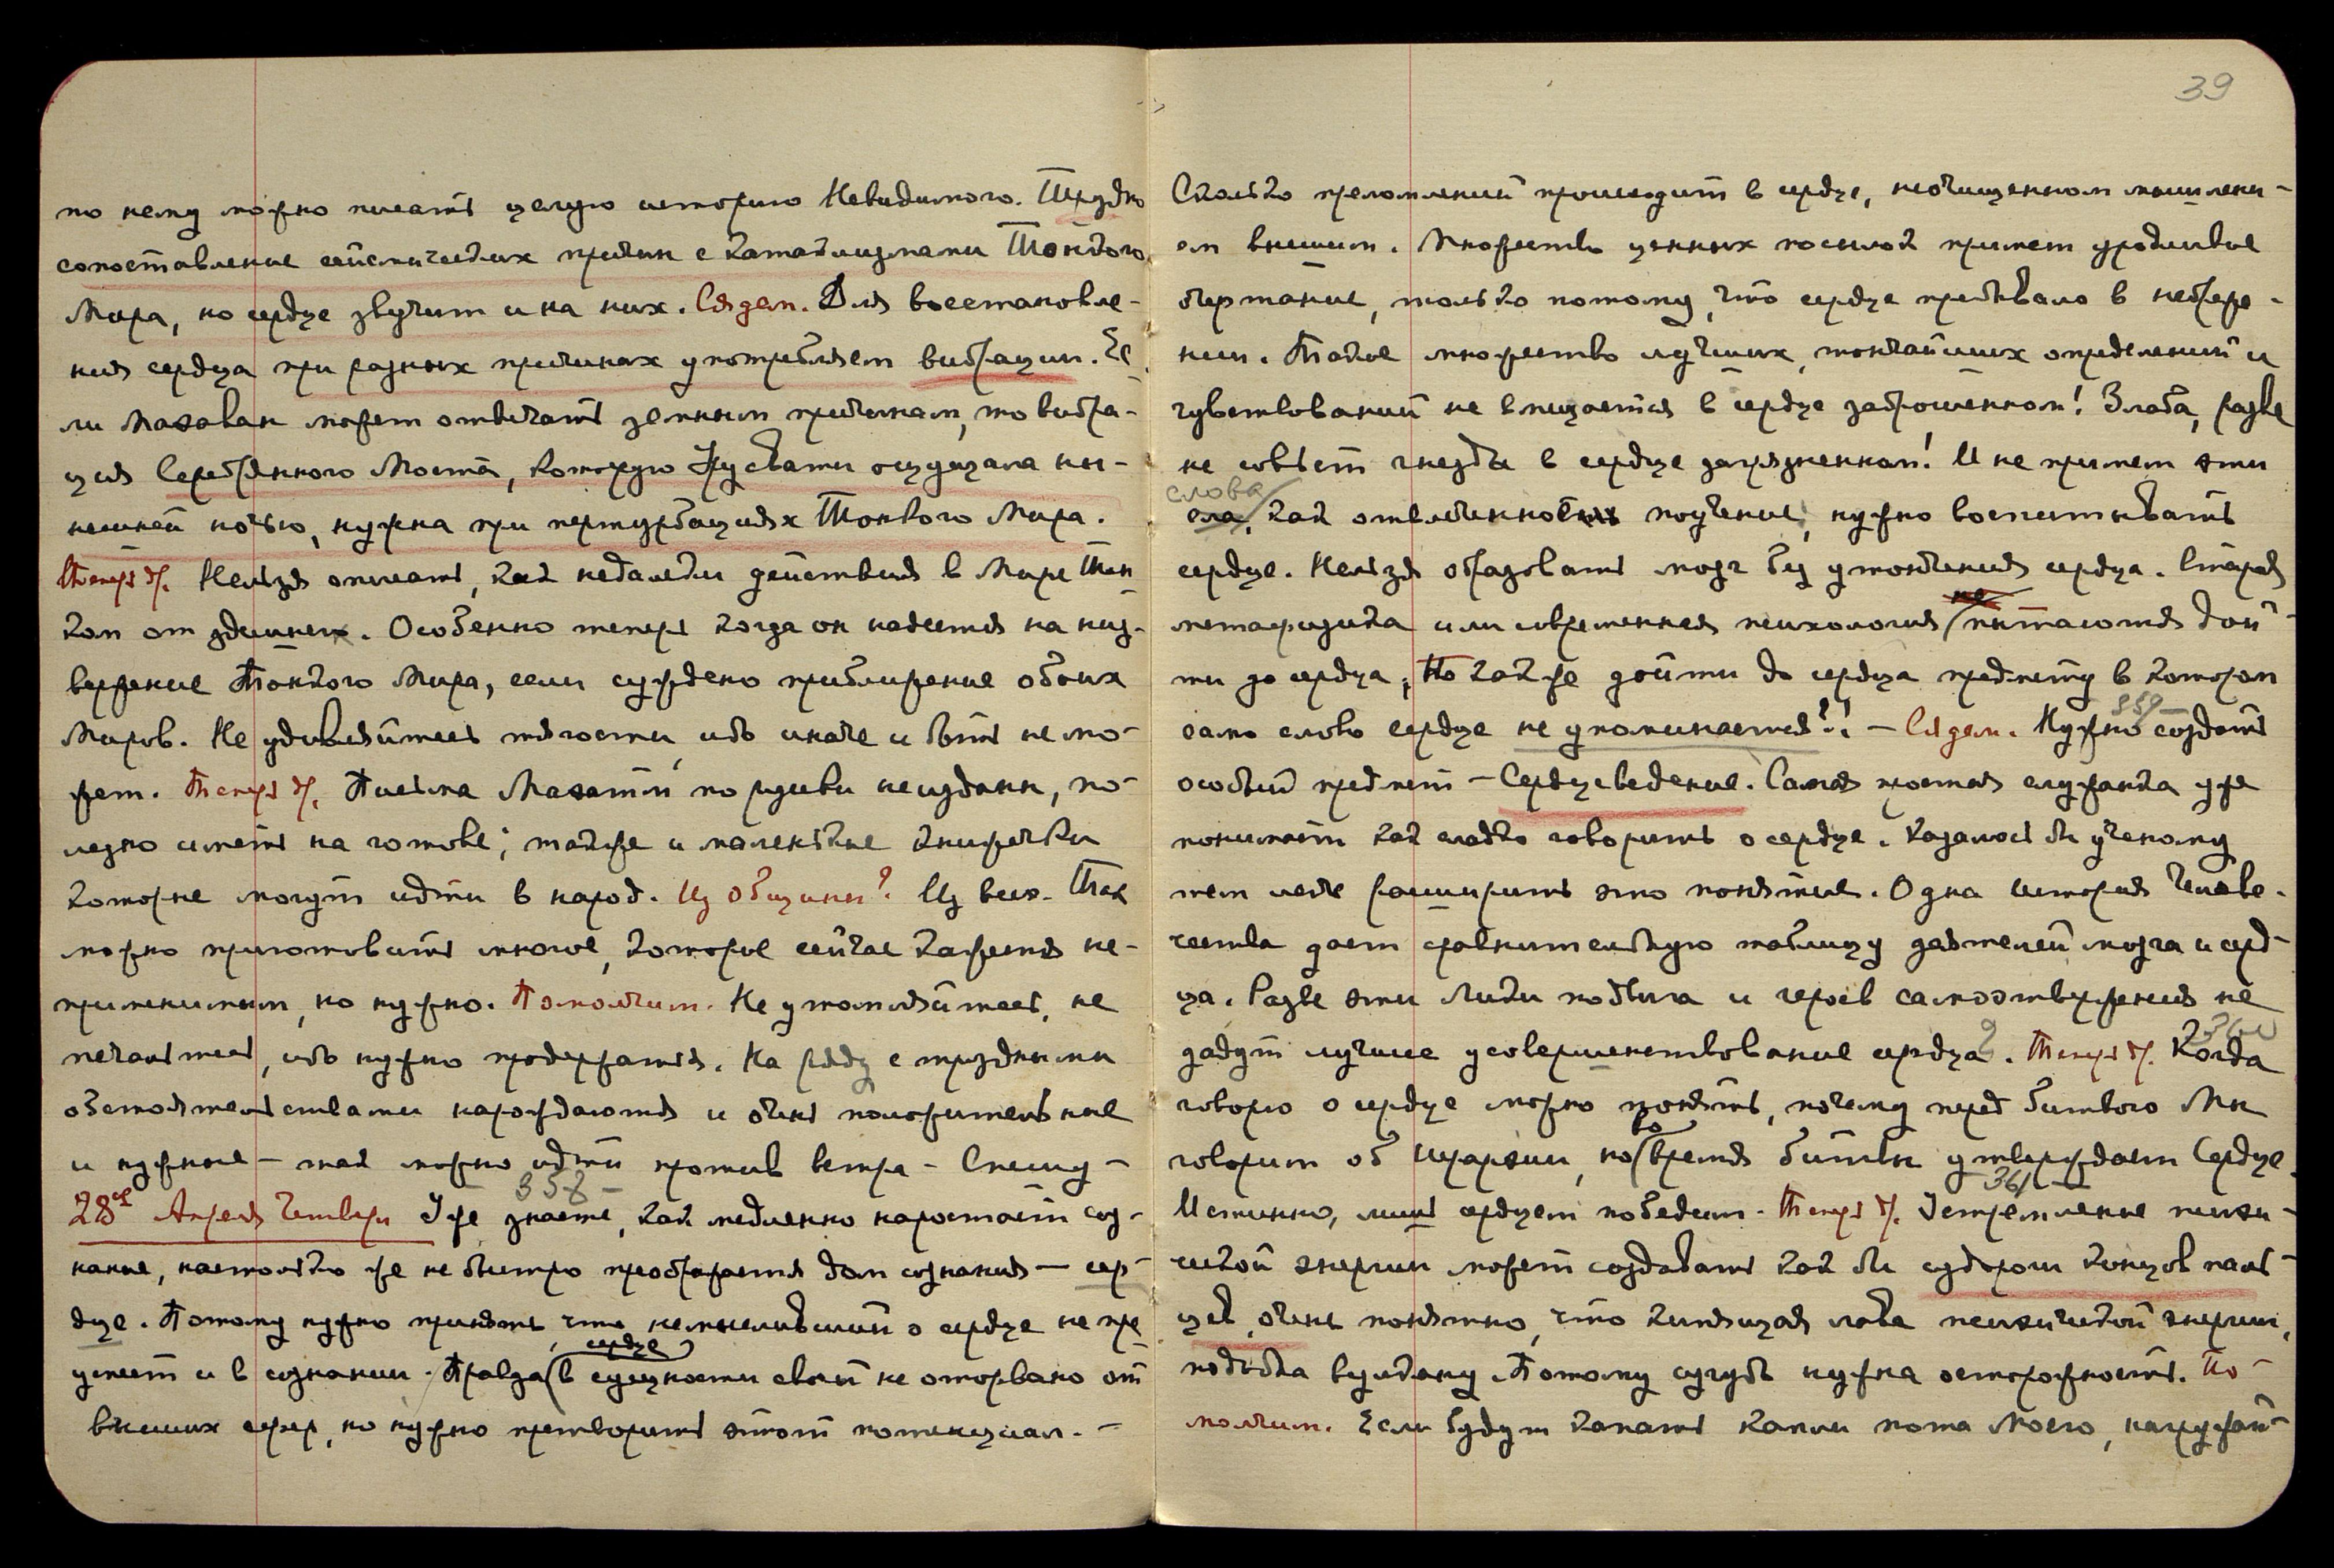 по нему можно писать целую историю Невидимого. Трудно
сопоставление сейсмических причин с катаклизмами Тонкого
Мира, но сердце звучит и на них. Сядем. Для восстановле-
ния сердца при разных причинах употребляем вибрации. Ес-
ли Махаван может отвечать земным причинам, то вибра-
ция Серебрянного Моста, которую Урусвати ощущала ны-
нешней ночью, нужна при пертурбациях Тонкого Мира.
Теперь др. Нельзя описать, как недалеки действия в Мире Тон
ком от здешних. Особенно теперь когда он надеется на низ-
вержение Тонкого Мира, если суждено приближение обоих
Миров. Не удивляйтесь тягости, ибо иначе и быть не мо-
жет. Теперь др. Письма Махатм по разным неизданн, по-
лезно иметь на готове; также и маленькие книжечки
которые могут идти в народ. Из Общины? Из всех. Так
можно приготовить многое, которое сейчас кажется не-
применимым, но нужно. Помолчим. Не утомляйтесь, не
печальтесь, ибо нужно продержаться. На ряду с трудными
обстоятельствами нарождаются и очень положительные
и нужные – так можно идти против ветра – Спешу –
358 –
28ое Апреля Четверг Уже знаете, как медленно нарастает соз-
нание, настолько же не быстро преображается дом сознания – сер-
дце. Потому нужно принять что немысливший о сердце не пре
сердце
успеет и в сознании. Правда в сущности своей не оторвано от
высших сфер, но нужно претворить этот потенциал. –
39
Сколько преломлений происходит в сердце, неочищенном мышлени-
ем высшим. Множество ценных посылок примет уродливые
очертание, только потому, что сердце пребывало в небреже-
нии. Также множество лучших, тончайших определений и
чувствований не вмещается в сердце заброшенном! Злоба, разве
не совьет гнезда в сердце загрязненном! И не примем эти
слова
сла, как отвлеченное поучение, нужно воспитывать
сердце. Нельзя образовать мозг без утончения сердца. Старая
не
метафизика или современная психология пытаются дой-
ти до сердца, Но как же дойти до сердца предмету в котором
359 –
само слово сердце не упоминается?! – Сядем. Нужно создать
особый предмет – Сердцеведение. Самая простая служанка уже
понимает как сладко говорить о сердце. Казалось бы ученому
тем легче расширить это понятие. Одна история Челове-
чества дает сравнительную таблицу деятелей мозга и серд-
ца. Разве эти Лики подвига и героев самоотвержения не
360
дадут лучшее усовершенствование сердца? Теперь др. Когда
говорю о сердце можно понять, почему перед битвою Мы
во
говорим об Иерархии, но время битвы утверждаем Сердце.
361 –
Истинно, лишь сердцем победим. Теперь др. Устремление психи-
ческой энергии может создавать как бы судороги концов паль-
цев, очень понятно, что кипящая лава психической энергии,
подобна вулкану. Потому сугубо нужна осторожность. По-
молчим. Если будут капать капли пота Моего, нагружай-